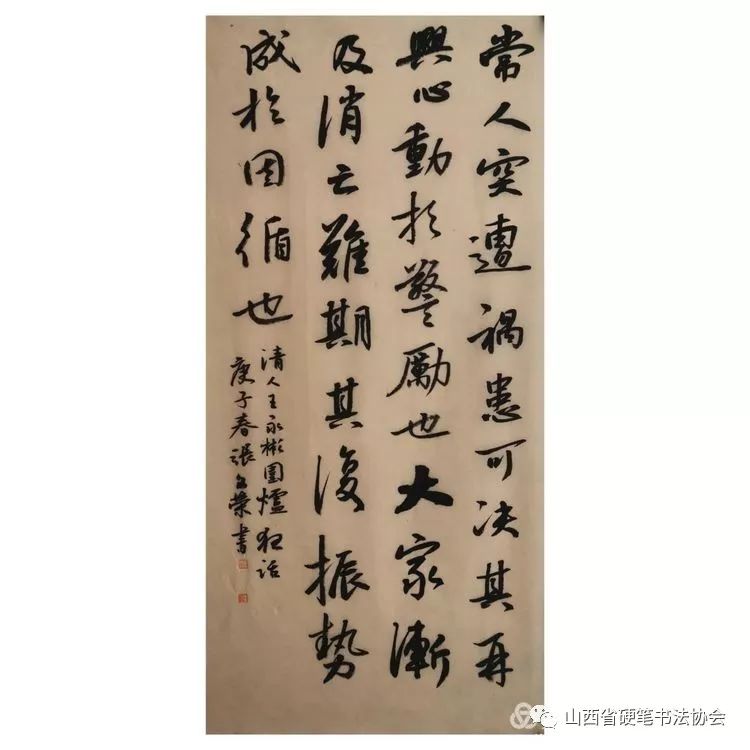 常人突遭祸患可决其再
興心動於警勵也大家漸
及消亡難期其復振勢
成於因循也
清人王永彬圍爐夜話
庚子春張文榮書
山西省硬笔书法协会